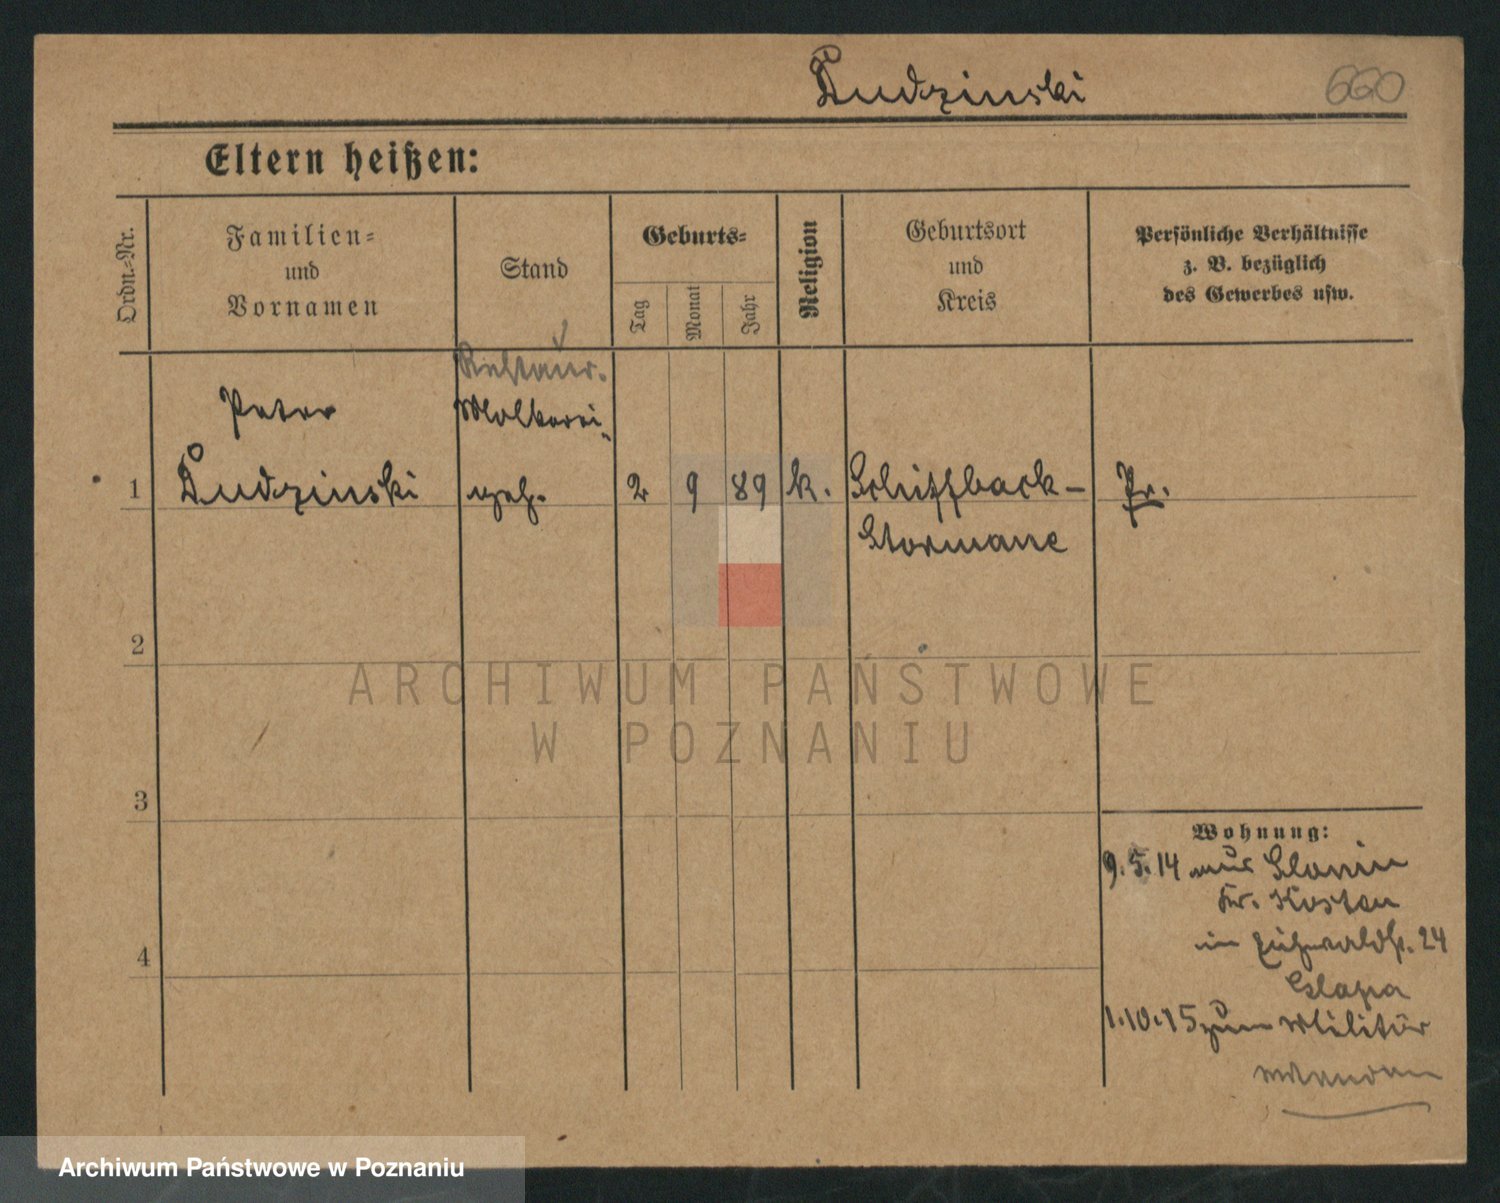 Dudzinski 660
Eltern heißen:
Ordn.=Nr.
Familien=
und
Vornamen
Stand
Geburts=
Tag
Monat
Jahr
Religion
Geburtsort
und
Kreis
Persönliche Verhältnisse
z. B. bezüglich
des Gewerbes usw.
Restaur.
Peter Molkerei-
1 Dudzinski geh. 2 9 89 k. Schiffback- Pr.
Stormarn
2
ARCHIWUM PAŃSTWOWE
W POZNANIU
3
Wohnung:
9.5.14 aus Slonin
Kr. Kosten
in 24
Glapa
4
1.10.15 zum Militär
Archiwum Państwowe w Poznaniu